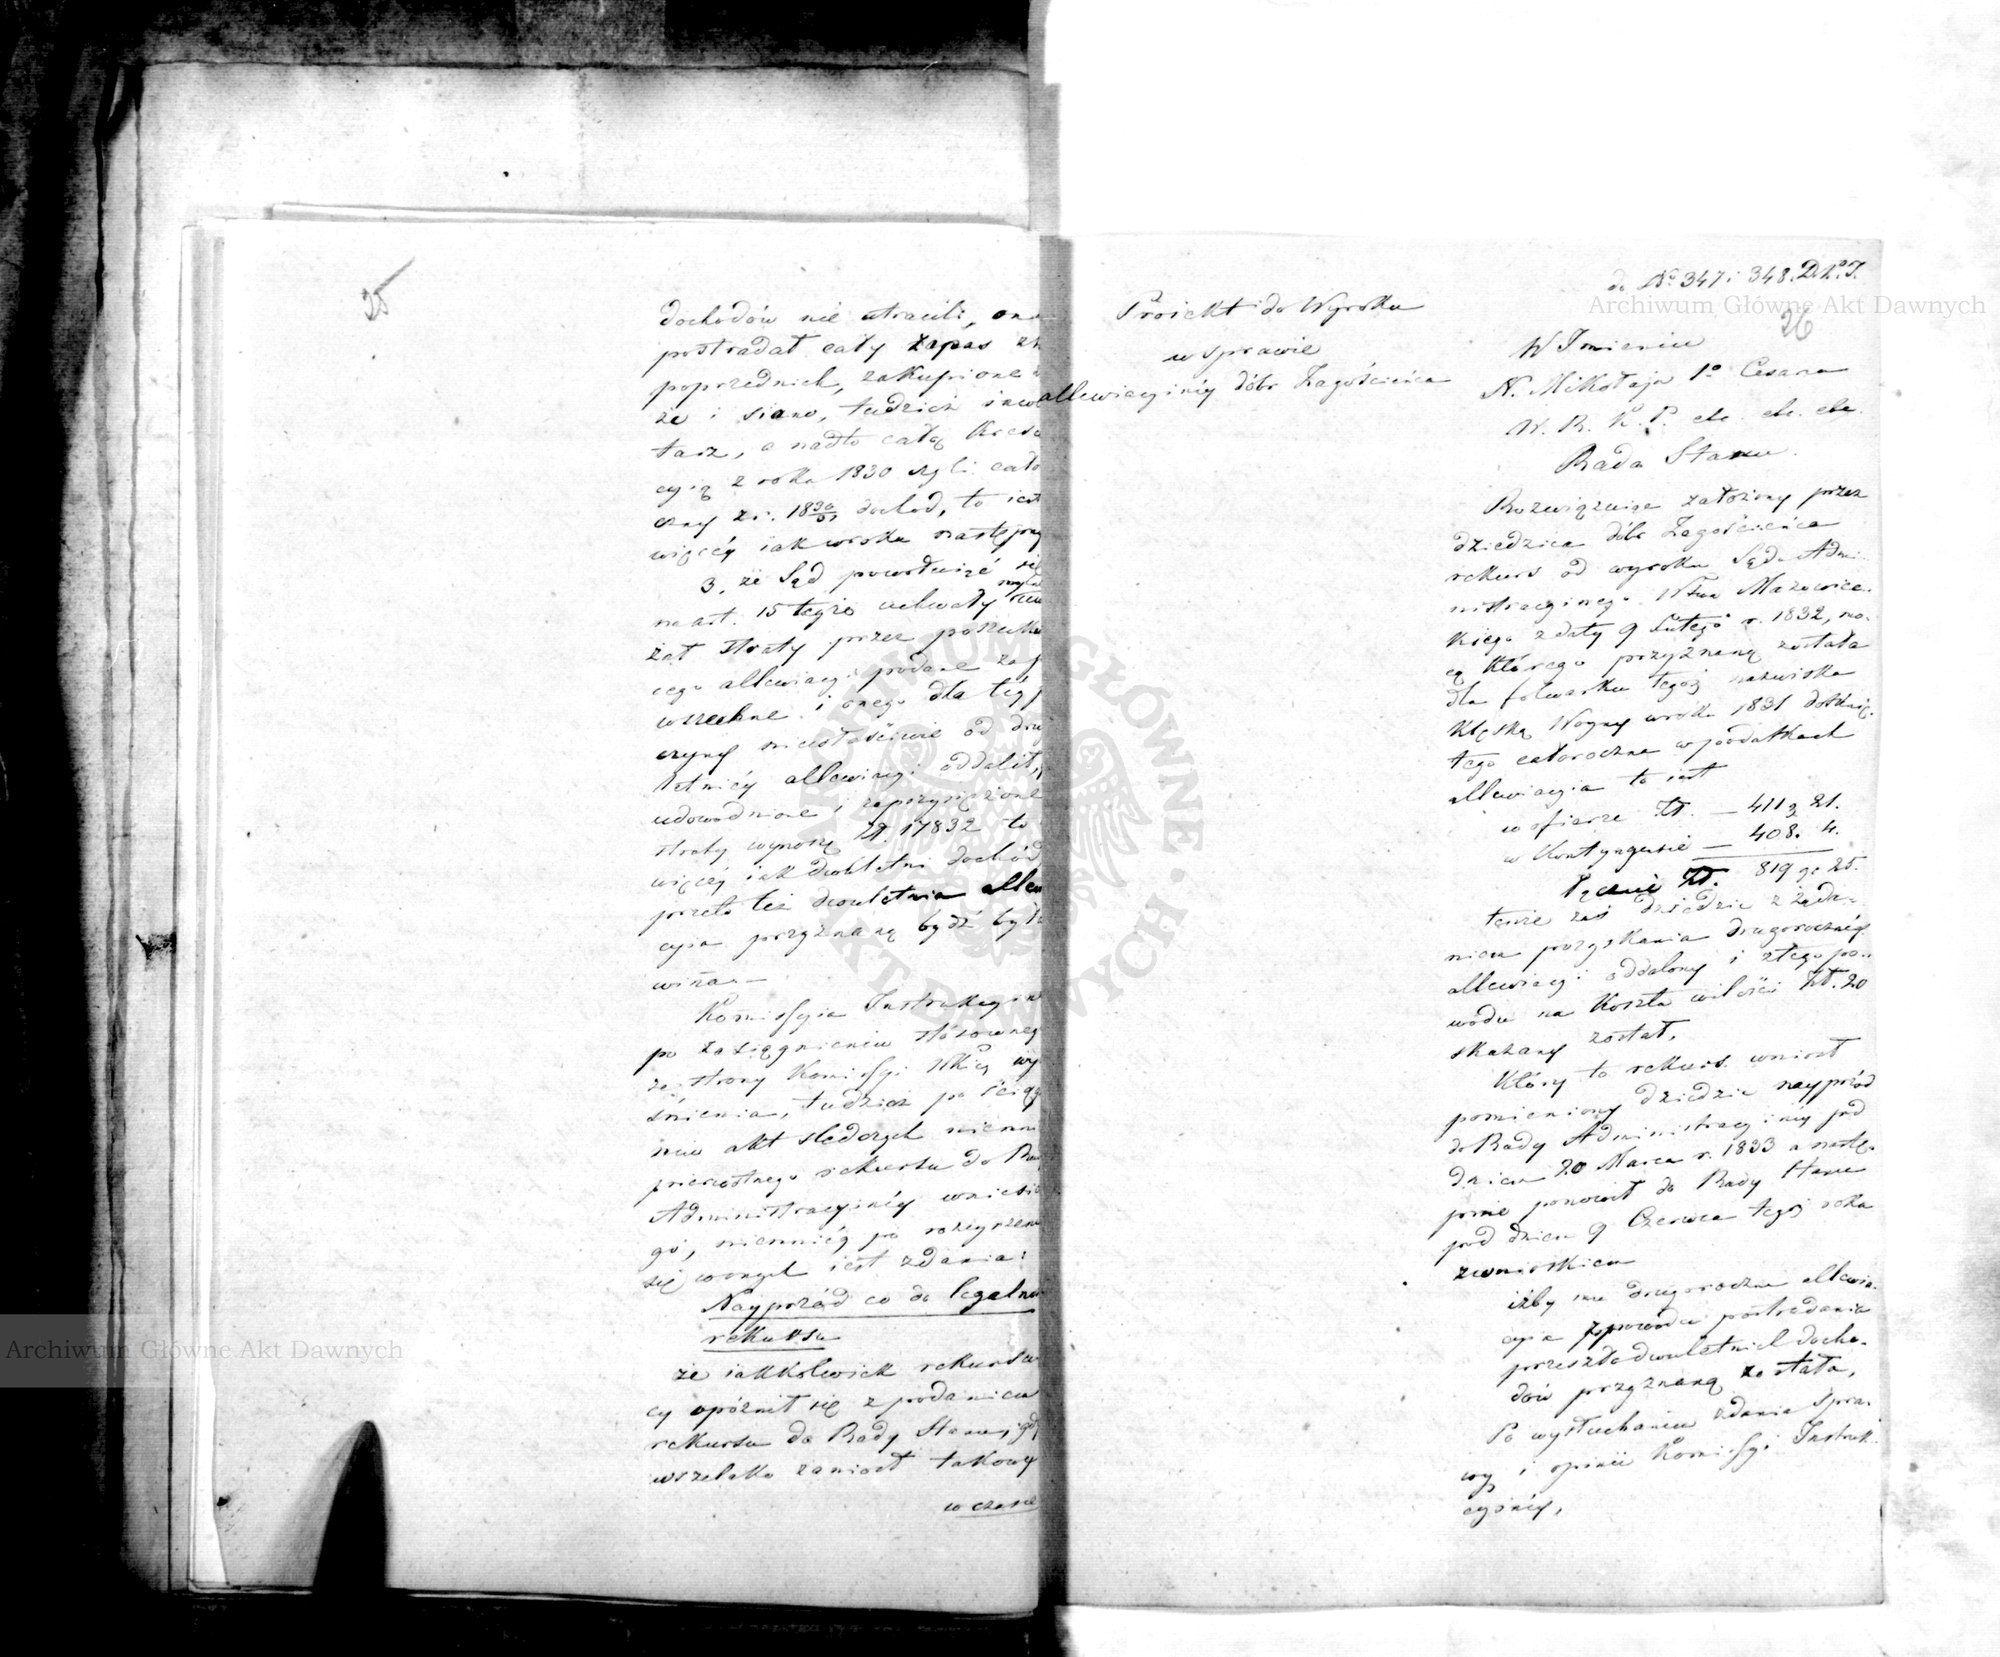 25
dochodów nie utracili, on
postradał cały zapas z
poprzednich, zakupione
że i siano, tudzież inwe
tarz, a nadto całą Kresc
cyią z roku 1830 czyli cało
czny z r. 1830/31 dochód, to iest
więcéy iak w roku następny
3, że Sąd powołuiąć się
na art. 15 tegże uchwały
żał straty przez poszuku
cego allewiacyi podane za p
wszechne i onego dla téy p
czyny niewłaściwie od dru
letniéy allewiacyi oddalił,
udowodnione i zaprzysiężone
straty wynoszą Zł. 17832 to
więcéy iak dwuletni dochód
przeto też dwuletnia allew
cyia przyznaną bydź był
winna.—
Kommissyia Instrukcyin
po zasiągnieniu stósowneg
ze strony Kommissyi Wkiéy wy
śnienia, tudzież po ściąg
niu akt śledczych niemn
pierwotnego rekursu do Rady
Administracyinéy wniesio
go, niemniéy po rozeyrzeniu
się w onych iest zdania:
Nayprzód co do legalno
rekursu
że iakkolwiek rekursu
cy opóźnił się z podaniem
rekursu do Rady Stanu, gdy
wszelako zaniósł takowy
w czasie
do No 347 i 348. D.P.J.
Archiwum Główne Akt Dawnych
26
Proiekt do Wyroku
w sprawie
allewiacyinéy dóbr Zagościeńca
W Imieniu
N. Mikołaja Io Cesarza
W. R. K. P. etc. etc. etc.
Rada Stanu.
Rozwiązuiąc założony przez
dziedzica dóbr Zagościeńca
rekurs od wyroku Sądu Admi-
nistracyinego Wtwa Mazowiec-
kiego z daty 9 Lutego r. 1832, mo-
cą którego przyznaną została
dla folwarku tegóż nazwiska
klęską Woyny w roku 1831 dotknię-
tego całoroczna w podatkach
allewiacyia to iest
w ofierze Zł. — 411 g 21.
w Kontyngensie — 408. 4.
łącznie Zł. 819 g. 25.
tenże zaś dziedzic z żąda-
niem pozyskania drugorocznéy
allewiacyi oddalony i z tego po-
wodu na Koszta w ilości Zł. 20
skazany został.
Który to rekurs wniósł
pomieniony dziedzic nayprzód
do Rady Administracyinéy pod
dniem 20 Marca r. 1833 a nastę-
pnie ponowił do Rady Stanu
pod dniem 9 Czerwca tegóż roku
z wnioskiem
iżby mu drugoroczna allewia-
cyia z powodu postradania
przeszło dwuletnich docho-
dów przyznaną została,
Po wysłuchaniu zdania Spra-
wy i opinii Kommissyi Instruk-
cyinéy,
Archiwum Główne Akt Dawnych
ARCHIWUM GŁÓWNE AKT DAWNYCH